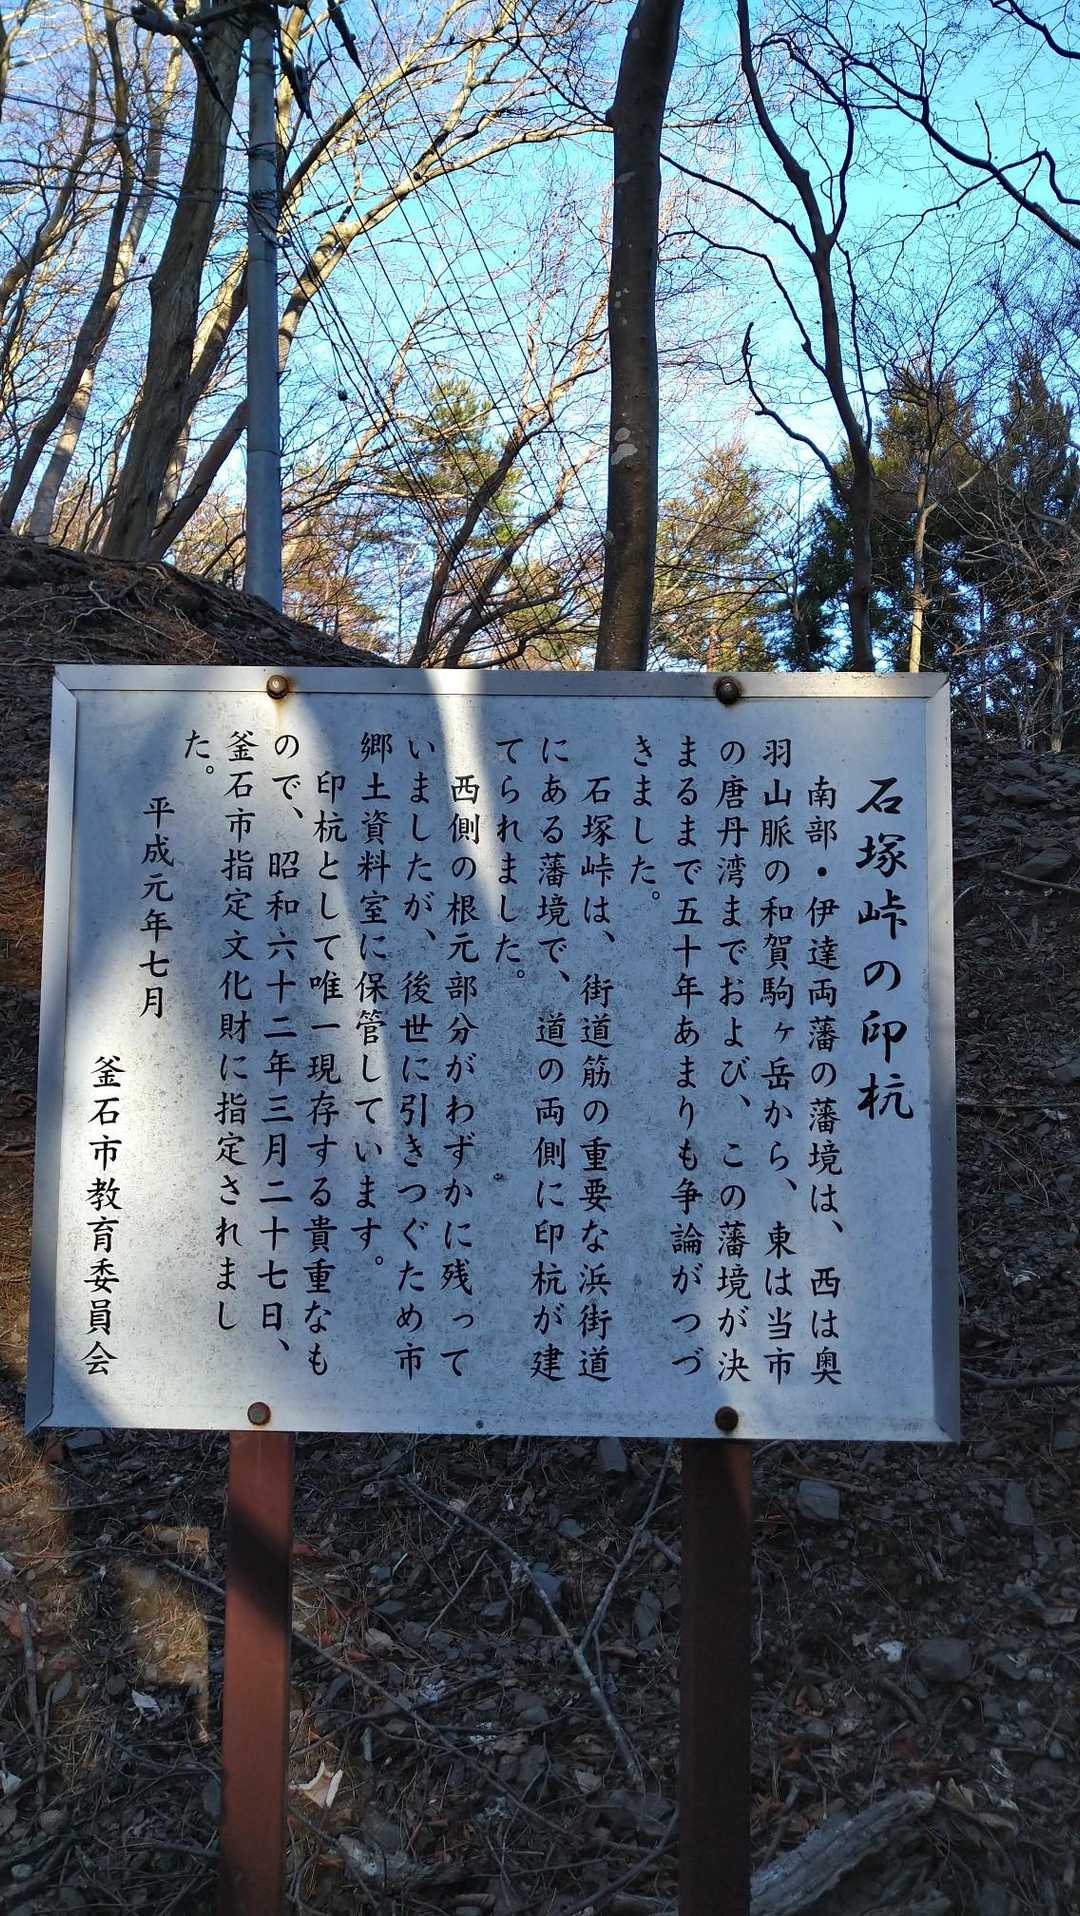 石塚峠の印杭
南部・伊達両藩の藩境は、西は奥
羽山脈の和賀駒ヶ岳から、東は当市
の唐丹湾までおよび、この藩境が決
まるまで五十年あまりも争論がつづ
きました。
石塚峠は、街道筋の重要な浜街道
にある藩境で、道の両側に印杭が建
てられました。
西側の根元部分がわずかに残って
いましたが、後世に引きつぐため市
郷土資料室に保管しています。
印杭として唯一現存する貴重なも
ので、昭和六十二年三月二十七日、
釜石市指定文化財に指定されまし
た。
平成元年七月
釜石市教育委員会